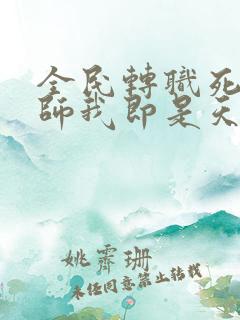 全民轉職死
師我即是天
姚霽珊
未任同意禁止轉載